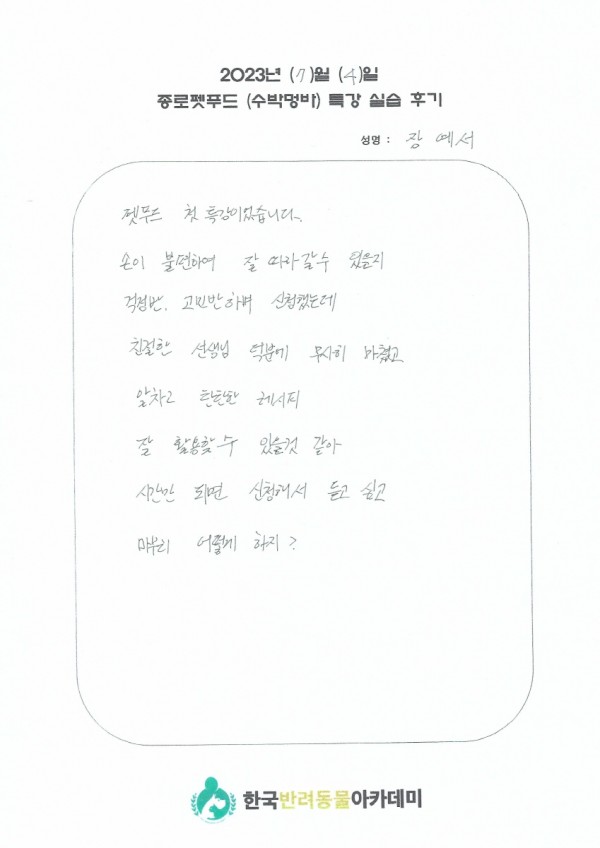 2023년 (7)월 (4)일
종로펫푸드 (수박멍바) 특강 실습 후기
성명 : 장예서
펫푸드 첫 특강이었습니다.
손이 불편하여 잘 따라갈수 있을지
걱정반, 고민반하며 신청했는데
친절한 선생님 덕분에 무사히 마쳤고
알차고 탄탄한 레시피
잘 활용할수 있을것 같아
시간만 되면 신청해서 듣고 싶고
마무리 어떻게 하지?
한국반려동물아카데미